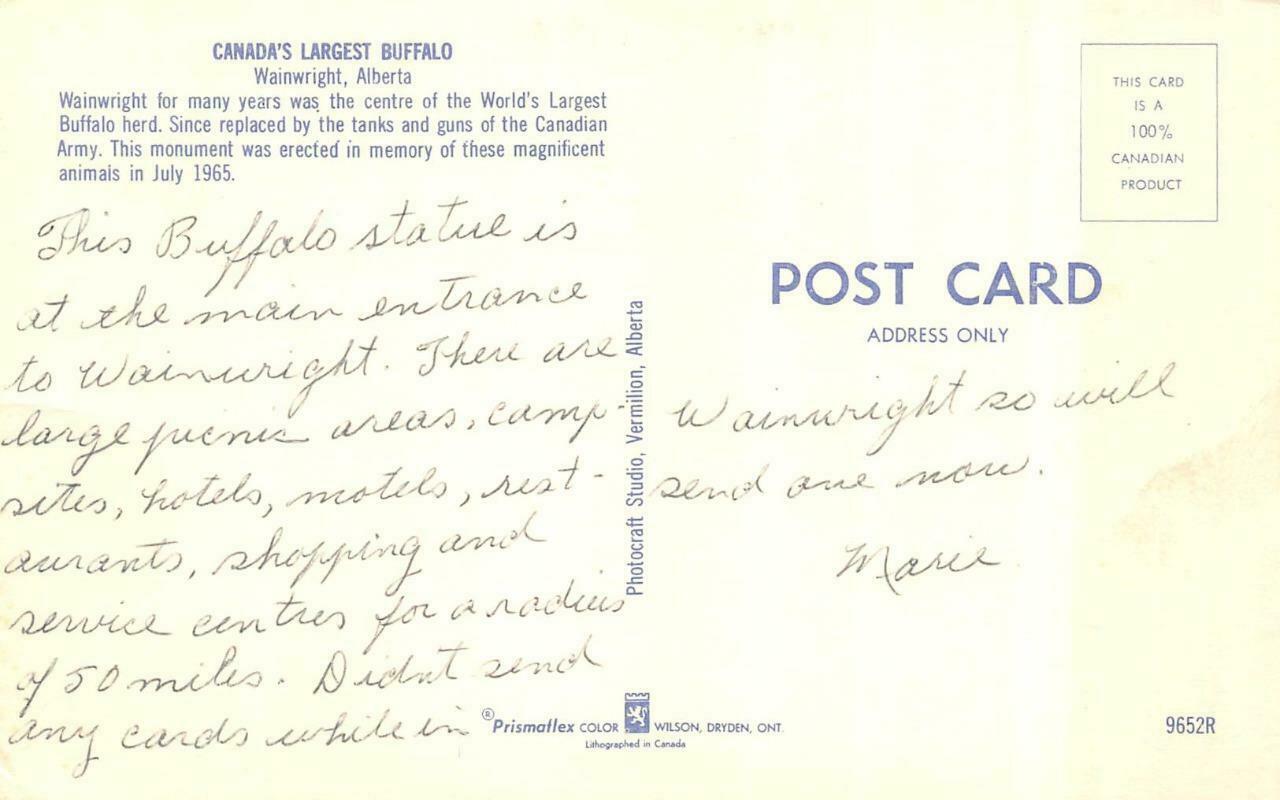 CANADA'S LARGEST BUFFALO
Wainwright, Alberta
Wainwright for many years was the centre of the World's Largest
Buffalo herd. Since replaced by the tanks and guns of the Canadian
Army. This monument was erected in memory of these magnificent
animals in July 1965.
This Buffalo statue is
at the main entrance
to Wainwright. There are
large picnic areas, camp-
sites, hotels, motels, rest-
aurants, shopping and
service centres for a radius
of 50 miles. Didnt send
any cards while in
Photocraft Studio, Vermilion, Alberta
® Prismaflex COLOR WILSON, DRYDEN, ONT.
Lithographed in Canada
THIS CARD
IS A
100%
CANADIAN
PRODUCT
POST CARD
ADDRESS ONLY
Wainwright so will
send one now.
Marie
9652R